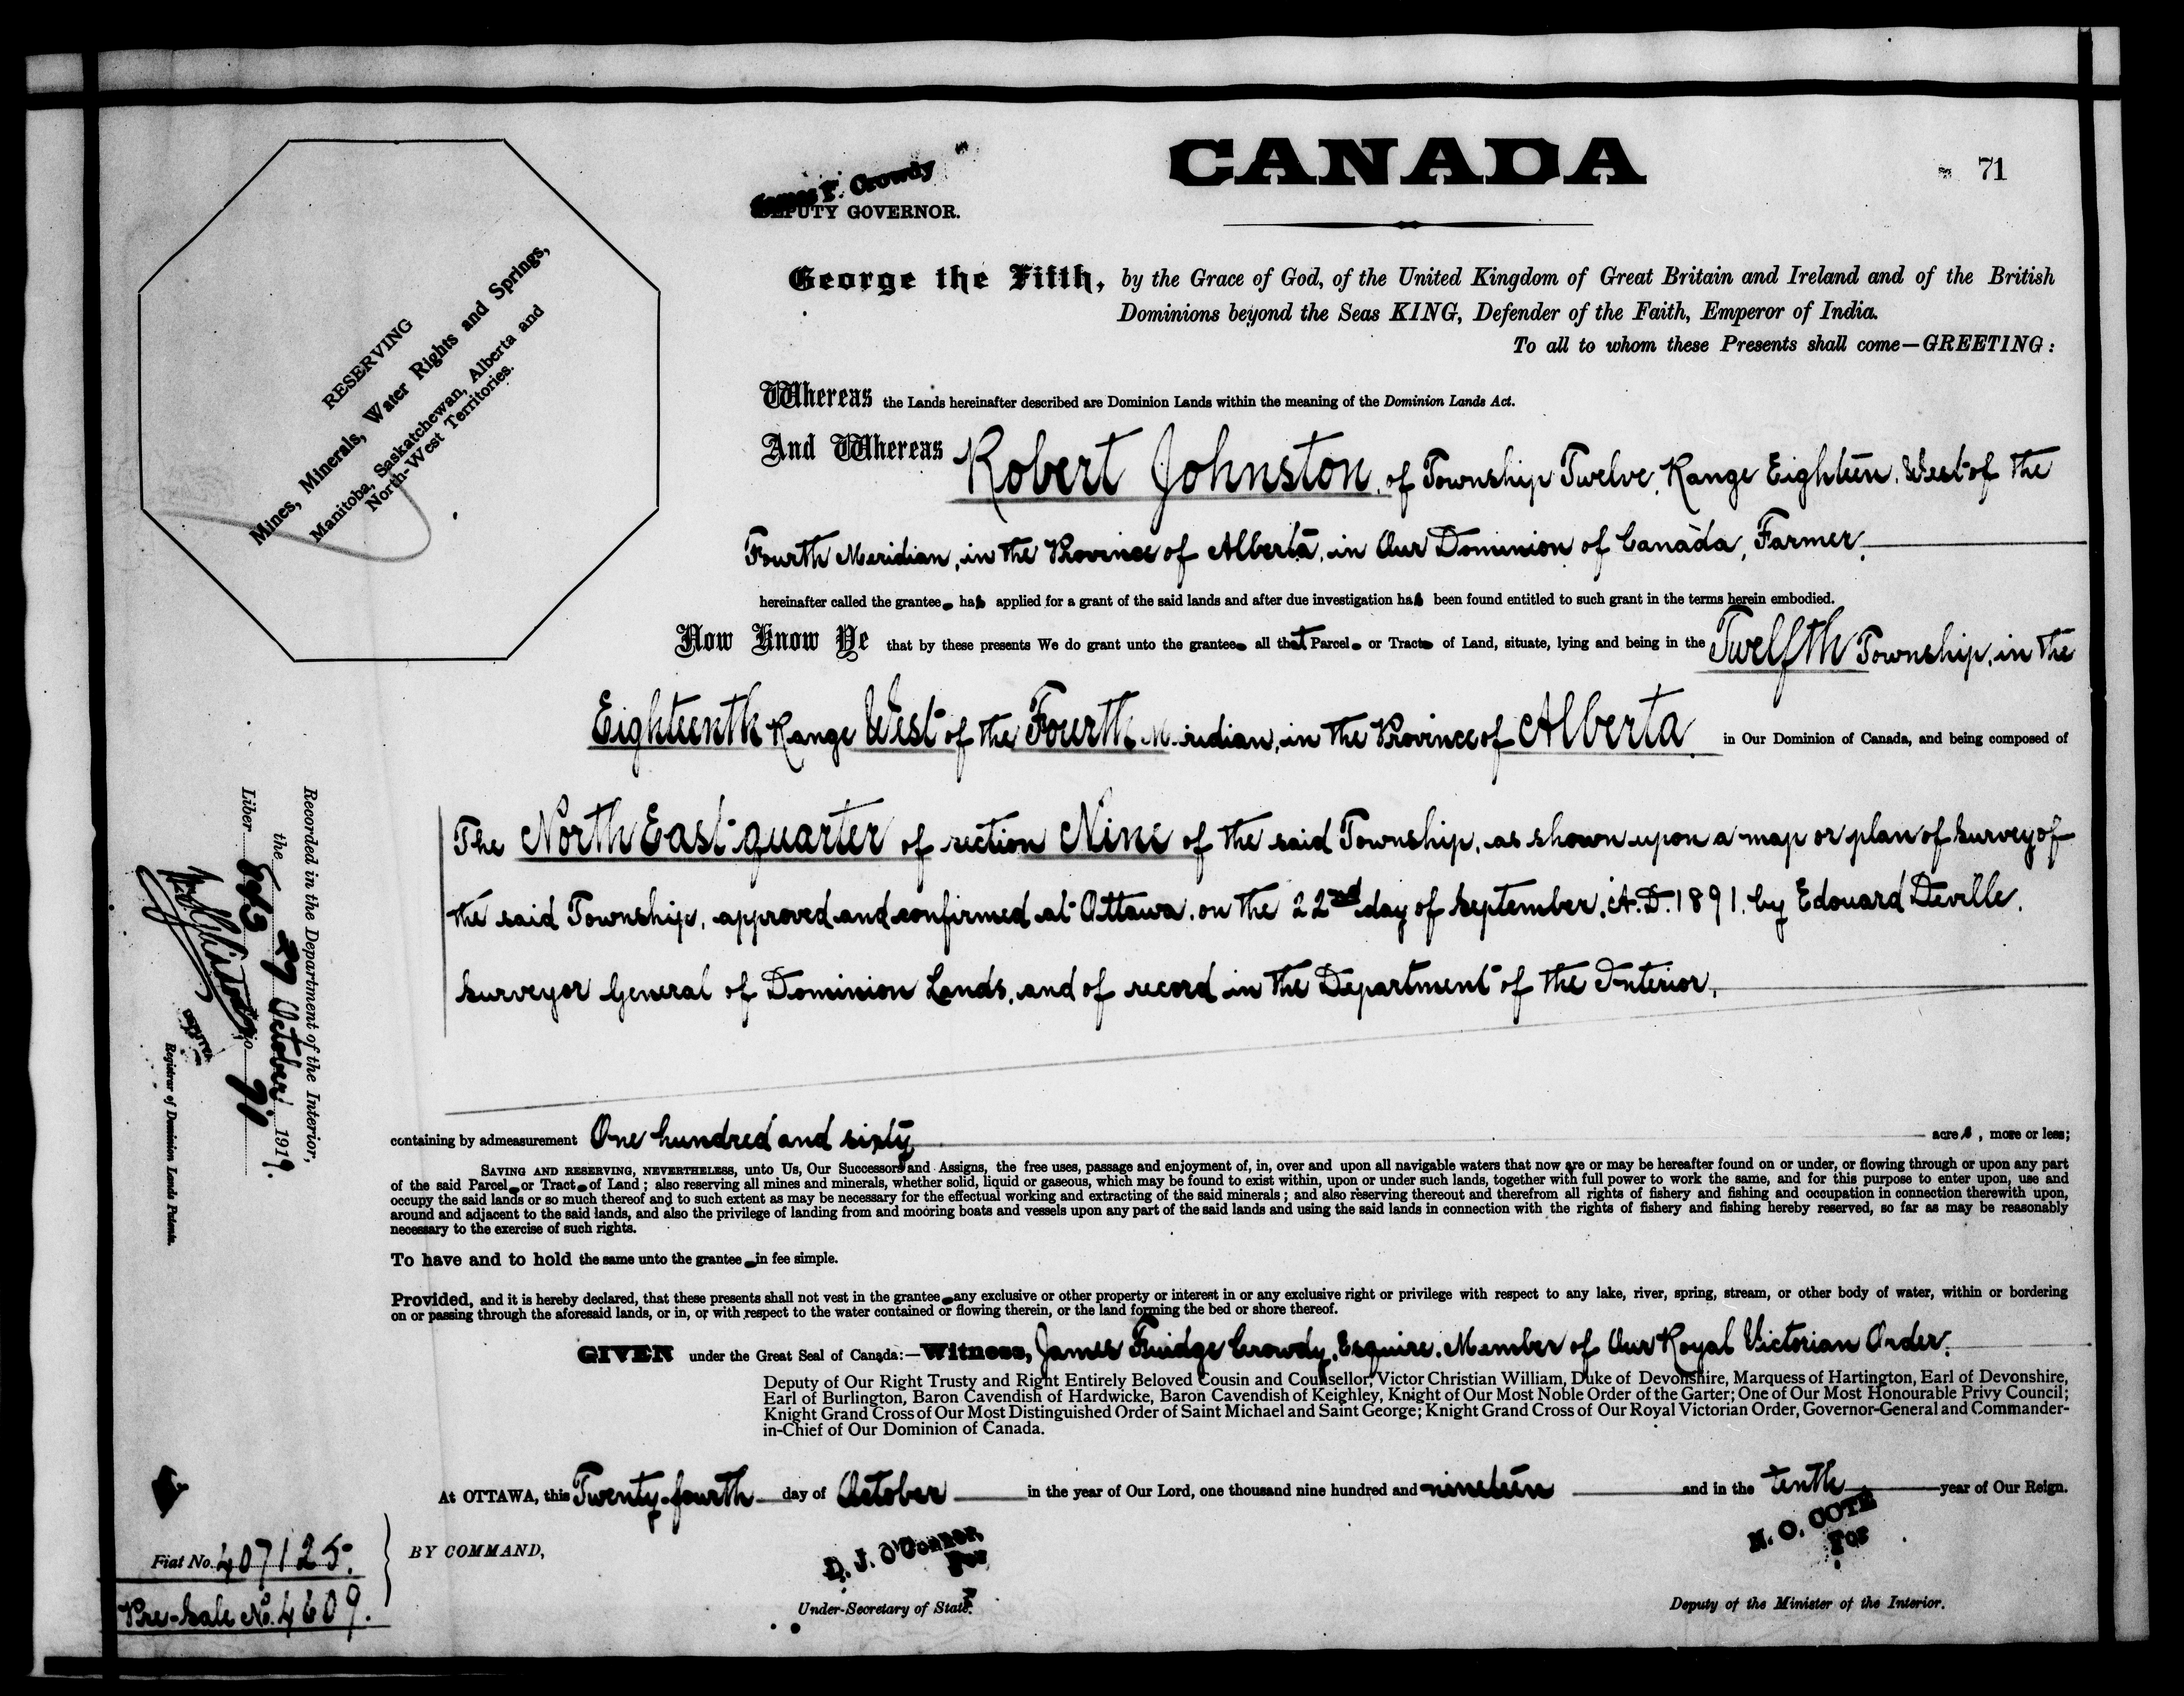 CANADA
71
James F. Crowdy
DEPUTY GOVERNOR.
RESERVING
Mines, Minerals, Water Rights and Springs,
Manitoba, Saskatchewan, Alberta and
North-West Territories.
George the Fifth, by the Grace of God, of the United Kingdom of Great Britain and Ireland and of the British
Dominions beyond the Seas KING, Defender of the Faith, Emperor of India.
To all to whom these Presents shall come—GREETING:
Whereas the Lands hereinafter described are Dominion Lands within the meaning of the Dominion Lands Act.
And Whereas Robert Johnston, of Township Twelve, Range Eighteen, West of the
Fourth Meridian, in the Province of Alberta, in Our Dominion of Canada, Farmer,
hereinafter called the grantee has applied for a grant of the said lands and after due investigation has been found entitled to such grant in the terms herein embodied.
Now Know Ye that by these presents We do grant unto the grantee all that Parcel or Tract of Land, situate, lying and being in the Twelfth Township, in the
Eighteenth Range West of the Fourth Meridian, in the Province of Alberta in Our Dominion of Canada, and being composed of
The North East quarter of section Nine of the said Township, as shown upon a map or plan of survey of
the said Township, approved and confirmed at Ottawa, on the 22nd day of September, A.D. 1891, by Edouard Deville,
Surveyor General of Dominion Lands, and of record in the Department of the Interior,
containing by admeasurement One hundred and sixty acres, more or less;
SAVING AND RESERVING, NEVERTHELESS, unto Us, Our Successors and Assigns, the free uses, passage and enjoyment of, in, over and upon all navigable waters that now are or may be hereafter found on or under, or flowing through or upon any part
of the said Parcel or Tract of Land; also reserving all mines and minerals, whether solid, liquid or gaseous, which may be found to exist within, upon or under such lands, together with full power to work the same, and for this purpose to enter upon, use and
occupy the said lands or so much thereof and to such extent as may be necessary for the effectual working and extracting of the said minerals; and also reserving thereout and therefrom all rights of fishery and fishing and occupation in connection therewith upon,
around and adjacent to the said lands, and also the privilege of landing from and mooring boats and vessels upon any part of the said lands and using the said lands in connection with the rights of fishery and fishing hereby reserved, so far as may be reasonably
necessary to the exercise of such rights.
To have and to hold the same unto the grantee in fee simple.
Provided, and it is hereby declared, that these presents shall not vest in the grantee any exclusive or other property or interest in or any exclusive right or privilege with respect to any lake, river, spring, stream, or other body of water, within or bordering
on or passing through the aforesaid lands, or in, or with respect to the water contained or flowing therein, or the land forming the bed or shore thereof.
GIVEN under the Great Seal of Canada:—Witness, James Fuidge Crowdy, Esquire, Member of Our Royal Victorian Order,
Deputy of Our Right Trusty and Right Entirely Beloved Cousin and Counsellor, Victor Christian William, Duke of Devonshire, Marquess of Hartington, Earl of Devonshire,
Earl of Burlington, Baron Cavendish of Hardwicke, Baron Cavendish of Keighley, Knight of Our Most Noble Order of the Garter; One of Our Most Honourable Privy Council;
Knight Grand Cross of Our Most Distinguished Order of Saint Michael and Saint George; Knight Grand Cross of Our Royal Victorian Order, Governor-General and Commander-
in-Chief of Our Dominion of Canada.
At OTTAWA, this Twenty-fourth day of October in the year of Our Lord, one thousand nine hundred and nineteen and in the tenth year of Our Reign.
BY COMMAND,
D. J. O'Connor,
For
Under-Secretary of State.
N. O. COTE
For
Deputy of the Minister of the Interior.
Recorded in the Department of the Interior,
the 27 October 1919.
Liber Folio 71
Registrar of Dominion Lands Patents.
Fiat No. 407125.
Pre-Sale No. 4609.